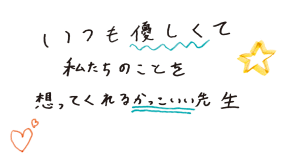 いつも優しくて
私たちのことを
想ってくれるかっこいい先生